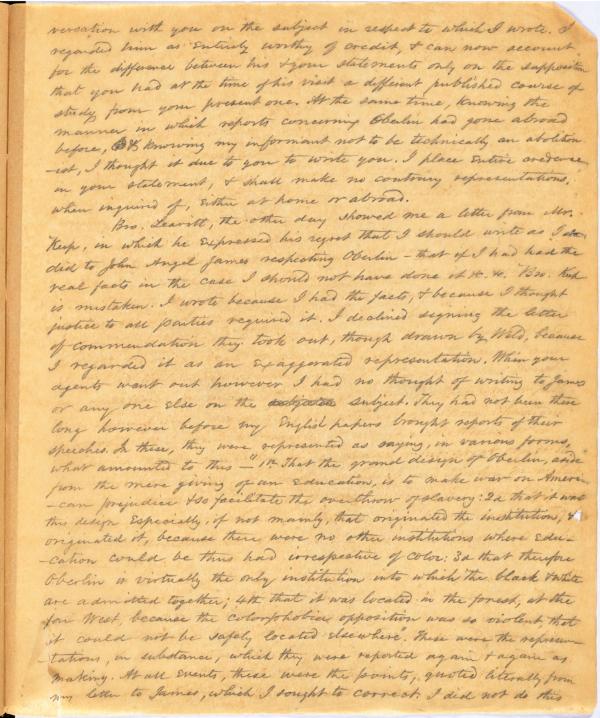 versation with you on the subject in respect to which I wrote. I
regarded him as entirely worthy of credit, & can now account
for the difference between his & your statements only on the supposition
that you had at the time of his visit a different published course of
study from your present one. At the same time, knowing the
manner in which reports concerning Oberlin had gone abroad
before, & knowing my informant not to be technically an abolition
-ist, I thought it due to you to write you. I place entire credence
in your statement, & shall make no contrary representations,
when inquired of, either at home or abroad.
Bro. Leavitt, the other day showed me a letter from Mr.
Keep, in which he expressed his regret that I should write as I
did to John Angel James respecting Oberlin - that if I had had the
real facts in the case I should not have done it &c. &c. Bro. Keep
is mistaken. I wrote because I had the facts, & because I thought
justice to all parties required it. I declined signing the letter
of commendation they took out, though drawn by Weld, because
I regarded it as an exaggerated representation. When your
agents went out however I had no thought of writing to James
or any one else on the subject. They had not been there
long however before my English papers brought reports of their
speeches. In these, they were represented as saying, in various forms,
what amounted to this - "1st That the grand design of Oberlin, aside
from the mere giving of an education, is to make war on Ameri-
-can prejudice & so facilitate the overthrow of slavery: 2d that it was
this design especially, if not mainly, that originated the institution, &
originated it, because there were no other institutions where edu-
-cation could be thus had irrespective of color: 3d that therefore
Oberlin is virtually the only institution into which the black & white
are admitted together; 4th that it was located in the forest, at the
far West, because the colorphobia opposition was so violent, that
it could not be safely located elsewhere. These were the represen-
-tations, in substance, which they were reported again & again as
making. At all events, these were the points, quoted literally from
my letter to James, which I sought to correct. I did not do this